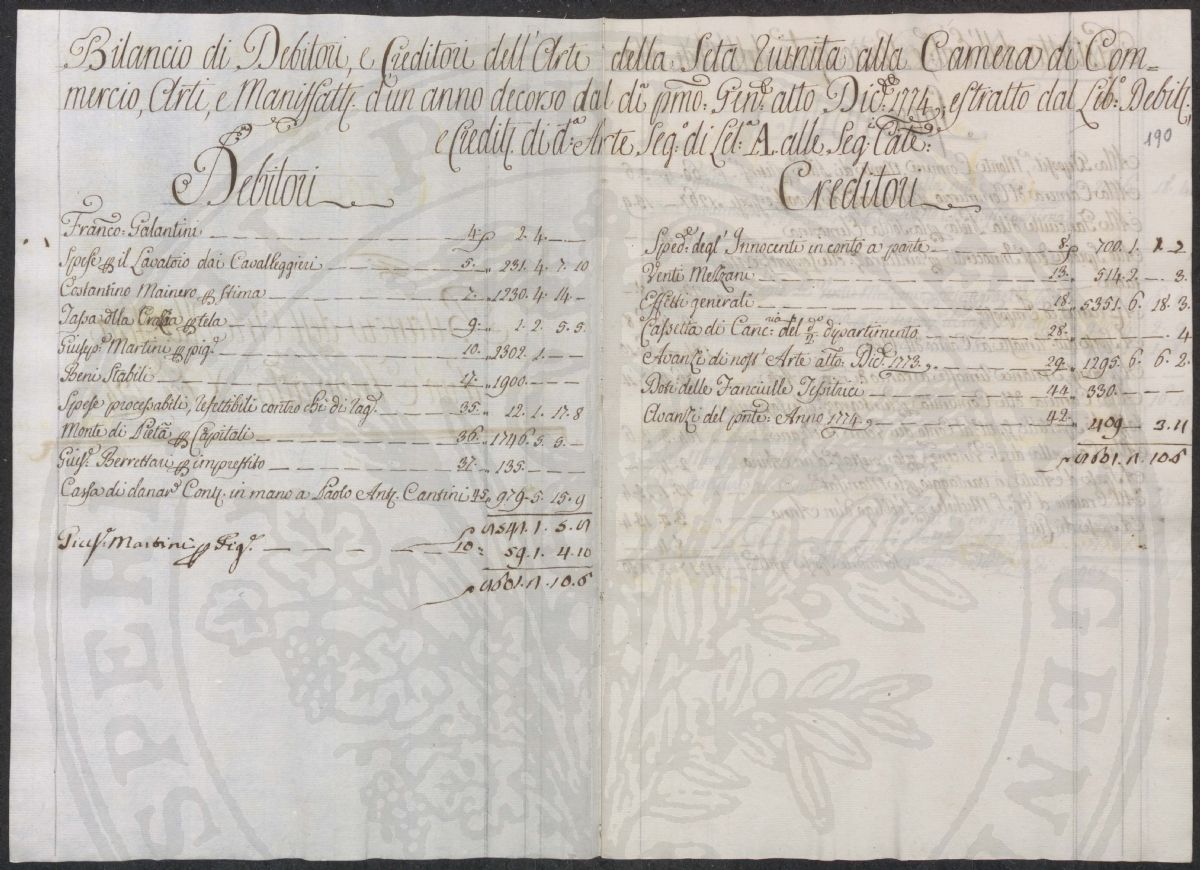 Bilancio di Debitori, e Creditori dell'Arte della Seta riunita alla Camera di Com=
mercio, Arti, e Maniffatt. d'un anno decorso dal dì pmo: Gen: atto Dic: 1774, estratto dal Lib: Debit:,
e Credit: di da: Arte Seg: di Let: A. alle Seg: Cate:
190
Debitori
Franco: Galantini 4. 2. 4. — —
Spese il Lavatoio dai Cavalleggieri 5. 231. 4. 7. 10
Costantino Mainero stima 7. 1230. 4. 14 —
Tassa tela 9. 1. 2. 5. 5
Giusep: Martini pig: 10. 2302. 1. — —
Beni Stabili 17. 1900. — — —
Spese processabili, refettibili contro chi di rag: 35. 12. 1. 17. 8
Monte di Pietà Capitali 36. 1746. 5. 9. —
Gius: Berrettari imprestito 37. 135. — — —
Cassa di danar: Cont: in mano a Paolo Ant: Cantini 45. 979. 5. 15. 9
9541. 1. 5. 9
Gius: Martini Pig: 10 59. 1. 4. 10
Creditori
Sped: degl'Innocenti in conto a parte 8. 700. 1. 1. 2
Venti Melzani 13. 514. 2. — 3.
Effetti generali 18. 5351. 6. 18. 3.
Cassetta di Canc: del dipartimento 28. — — 4
Avanzi di nost' Arte atto: Dic: 1773, 29. 1295. 6. 6. 2.
Doti delle Fanciulle Tessitrici 44. 330. — —
Avanzi del pnte: Anno 1774, 42. 409 — 3. 11